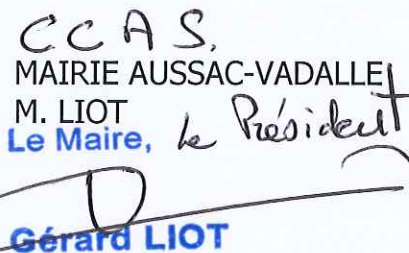 CCAS.
MAIRIE AUSSAC-VADALLE
M. LIOT
Le Maire, Le Président
Gérard LIOT